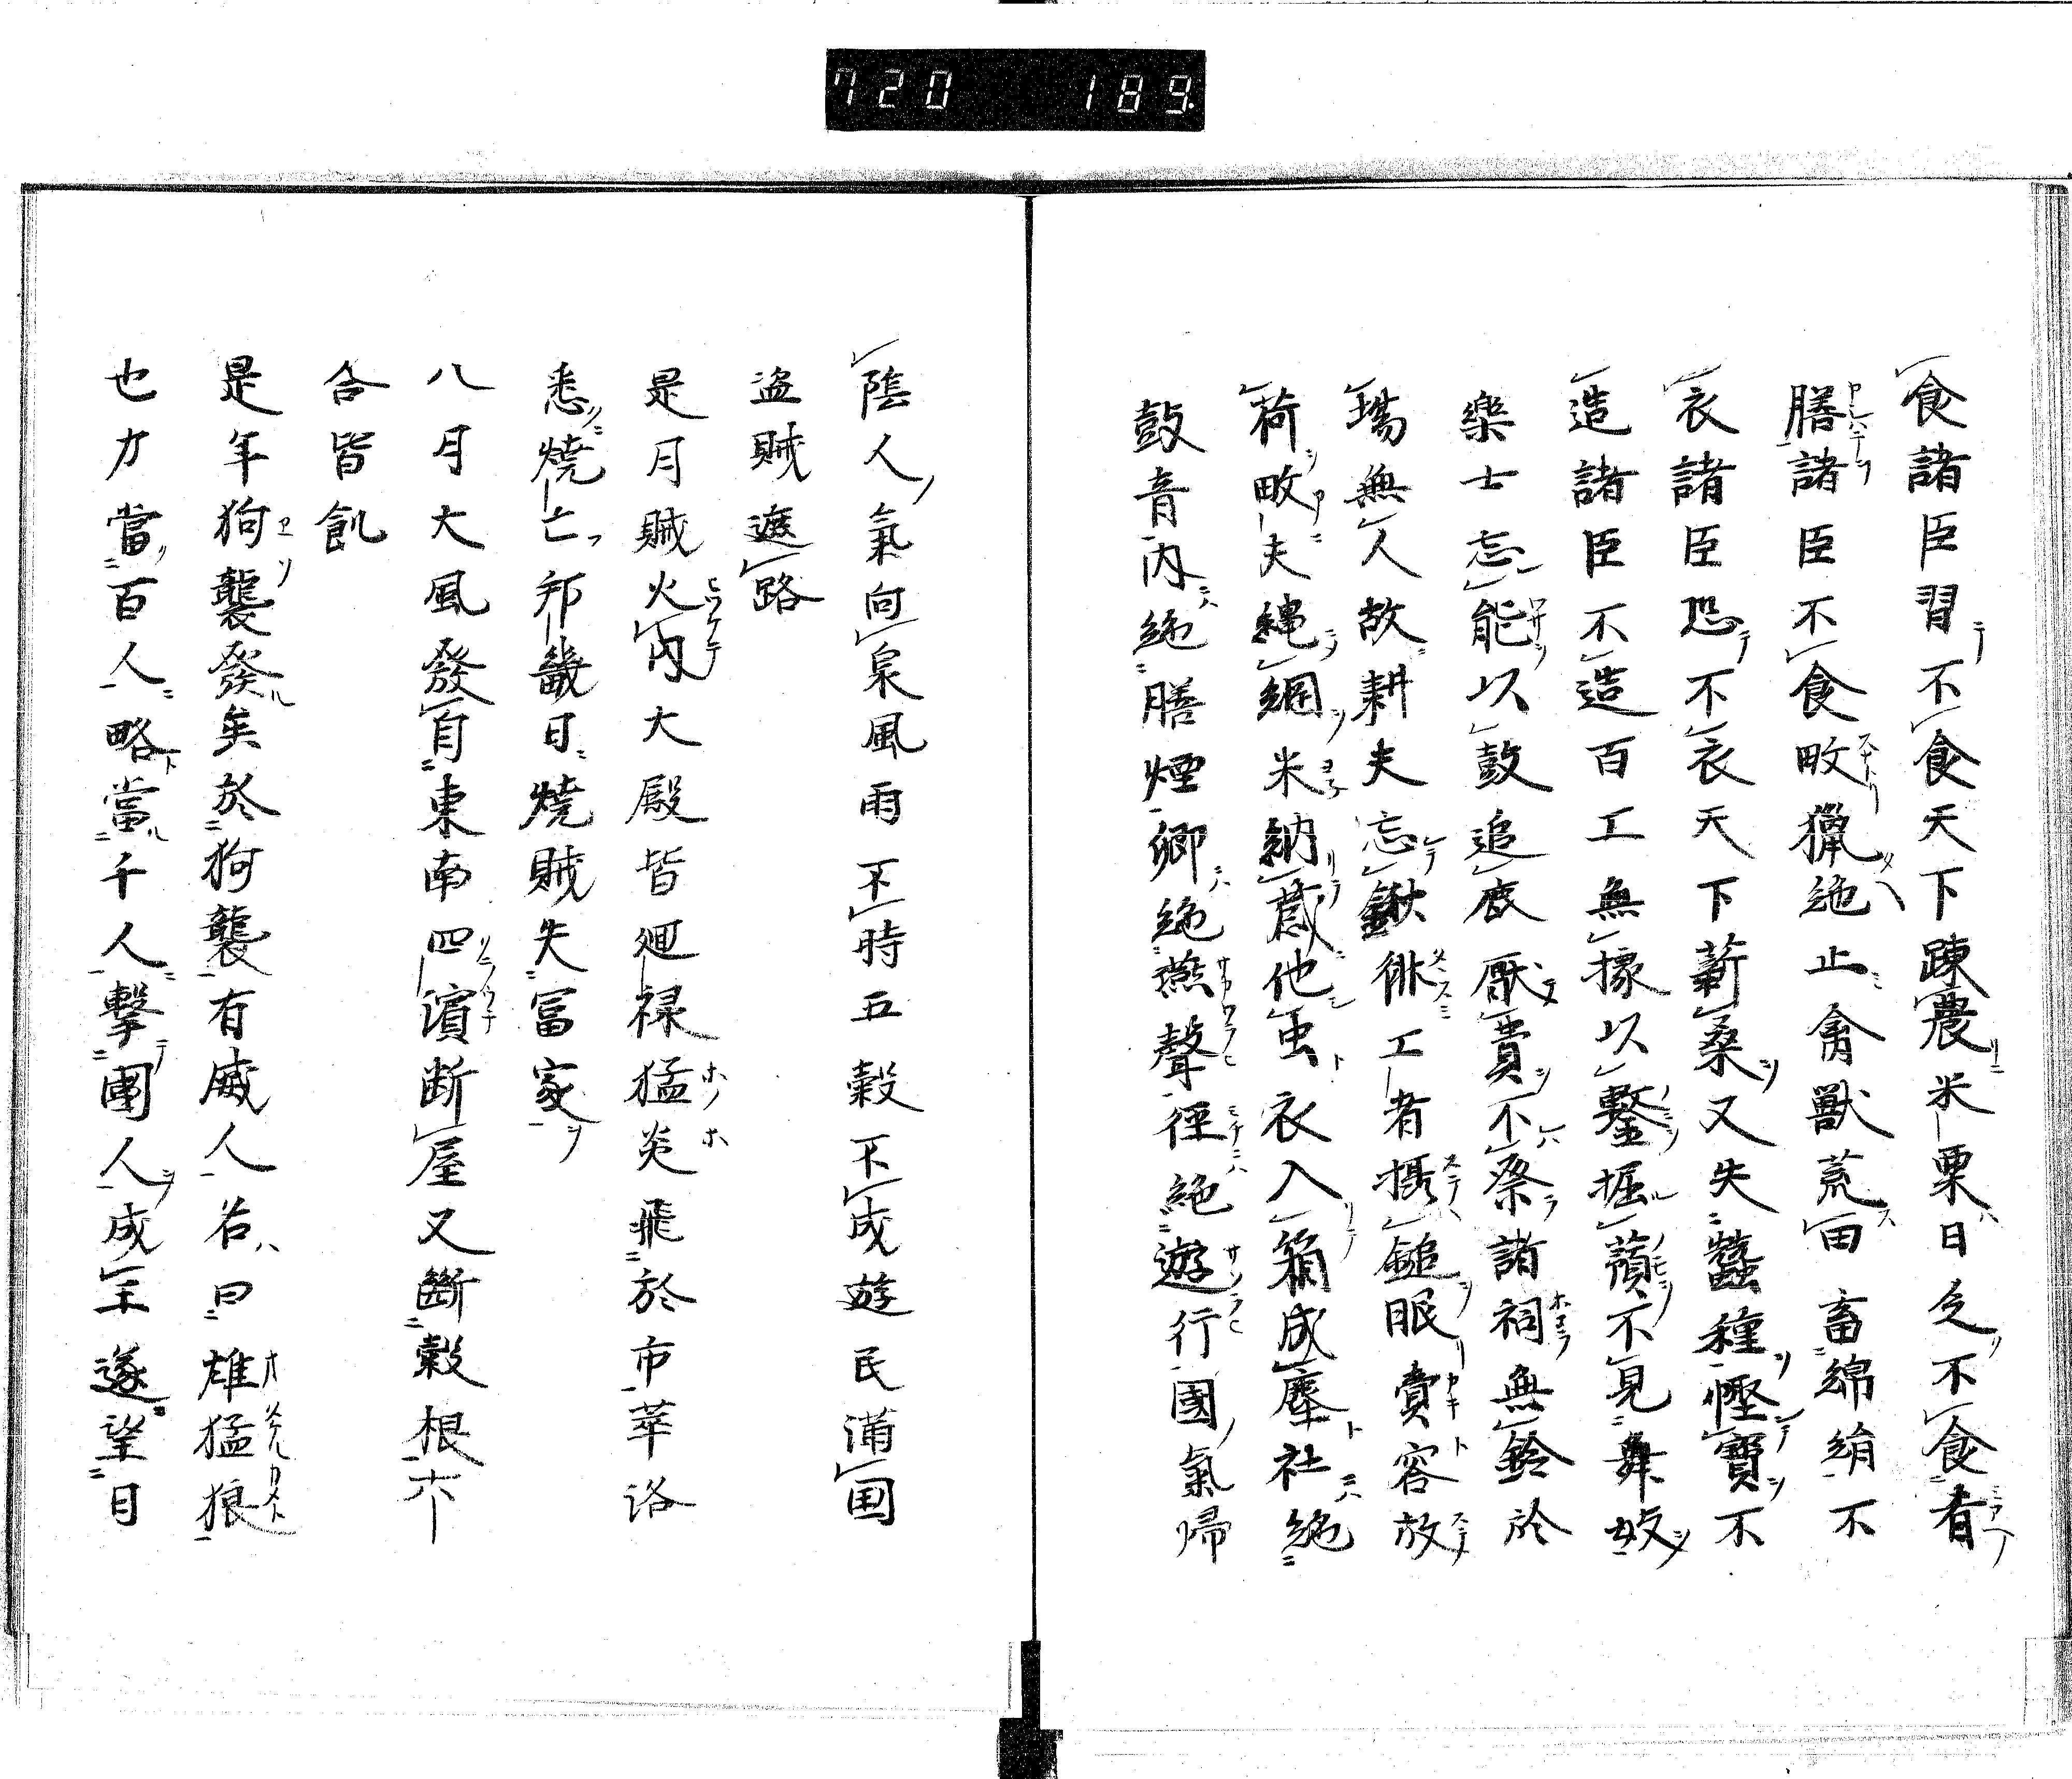 720 189
食諸臣習不食天下踈農米粟日乏不食肴
膳諸臣不食畋獵絶止禽獸荒田畜綿絹不
衣諸臣恐不衣天下薪桑又失蠶種慳寶不
造諸臣不造百工無掾以鑿掘蘋不見舞妓
樂士忘能以鼓追底厭賣不祭諸祠無鈴於
場無人故耕夫忘鍬俳工者携鎚眠賣容放
荷畋夫縄網米納蔵他虫衣入箱成塵社絶
鼓音内絶膳煙郷絶燕聲徑絶遊行國氣帰
陰人氣向泉風雨不時五穀不成遊民満国
盗賊遮路
是月賊火内大殿皆廻禄猛炎飛於市華洛
悉焼亡邦畿日焼賊失冨家
八月大風發自東南四濱断屋又斷穀根六
合皆飢
是年狗襲発矣於狗襲有威人名曰雄猛狼
也力當百人略當千人撃團人成王遂望日